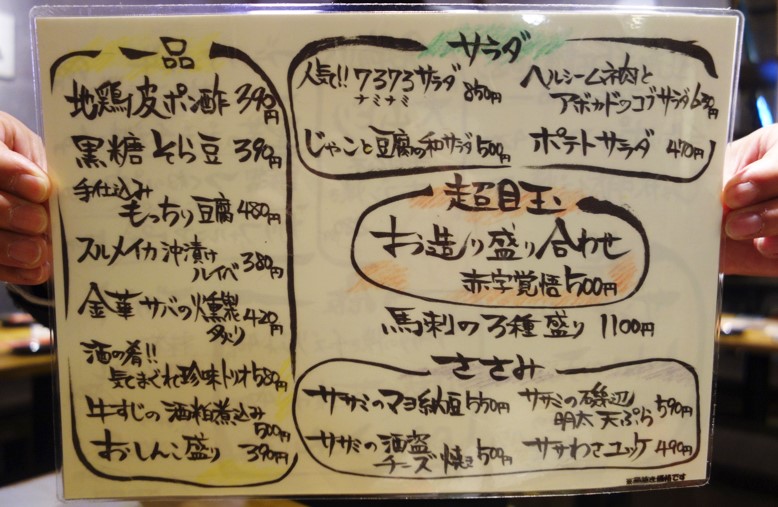 一品
地鶏皮ポン酢 390円
黒糖そら豆 390円
手仕込み
もっちり豆腐 480円
スルメイカ沖漬け
ルイベ 380円
金華サバの燻製
炙り 420円
酒の肴!!
気まぐれ珍味トリオ 580円
牛すじの酒粕煮込み
500円
おしんこ盛り 390円
サラダ
人気!! 7373サラダ 850円
ナミナミ
じゃこと豆腐の和サラダ 500円
ヘルシームネ肉と
アボカドコブサラダ 630円
ポテトサラダ 470円
超目玉
お造り盛り合わせ
赤字覚悟 500円
馬刺の3種盛り 1100円
ささみ
ササミのマヨ納豆 550円
ササミの酒盗
チーズ焼き 500円
ササミの磯辺
明太天ぷら 590円
ササわさユッケ 490円
※税抜き価格です